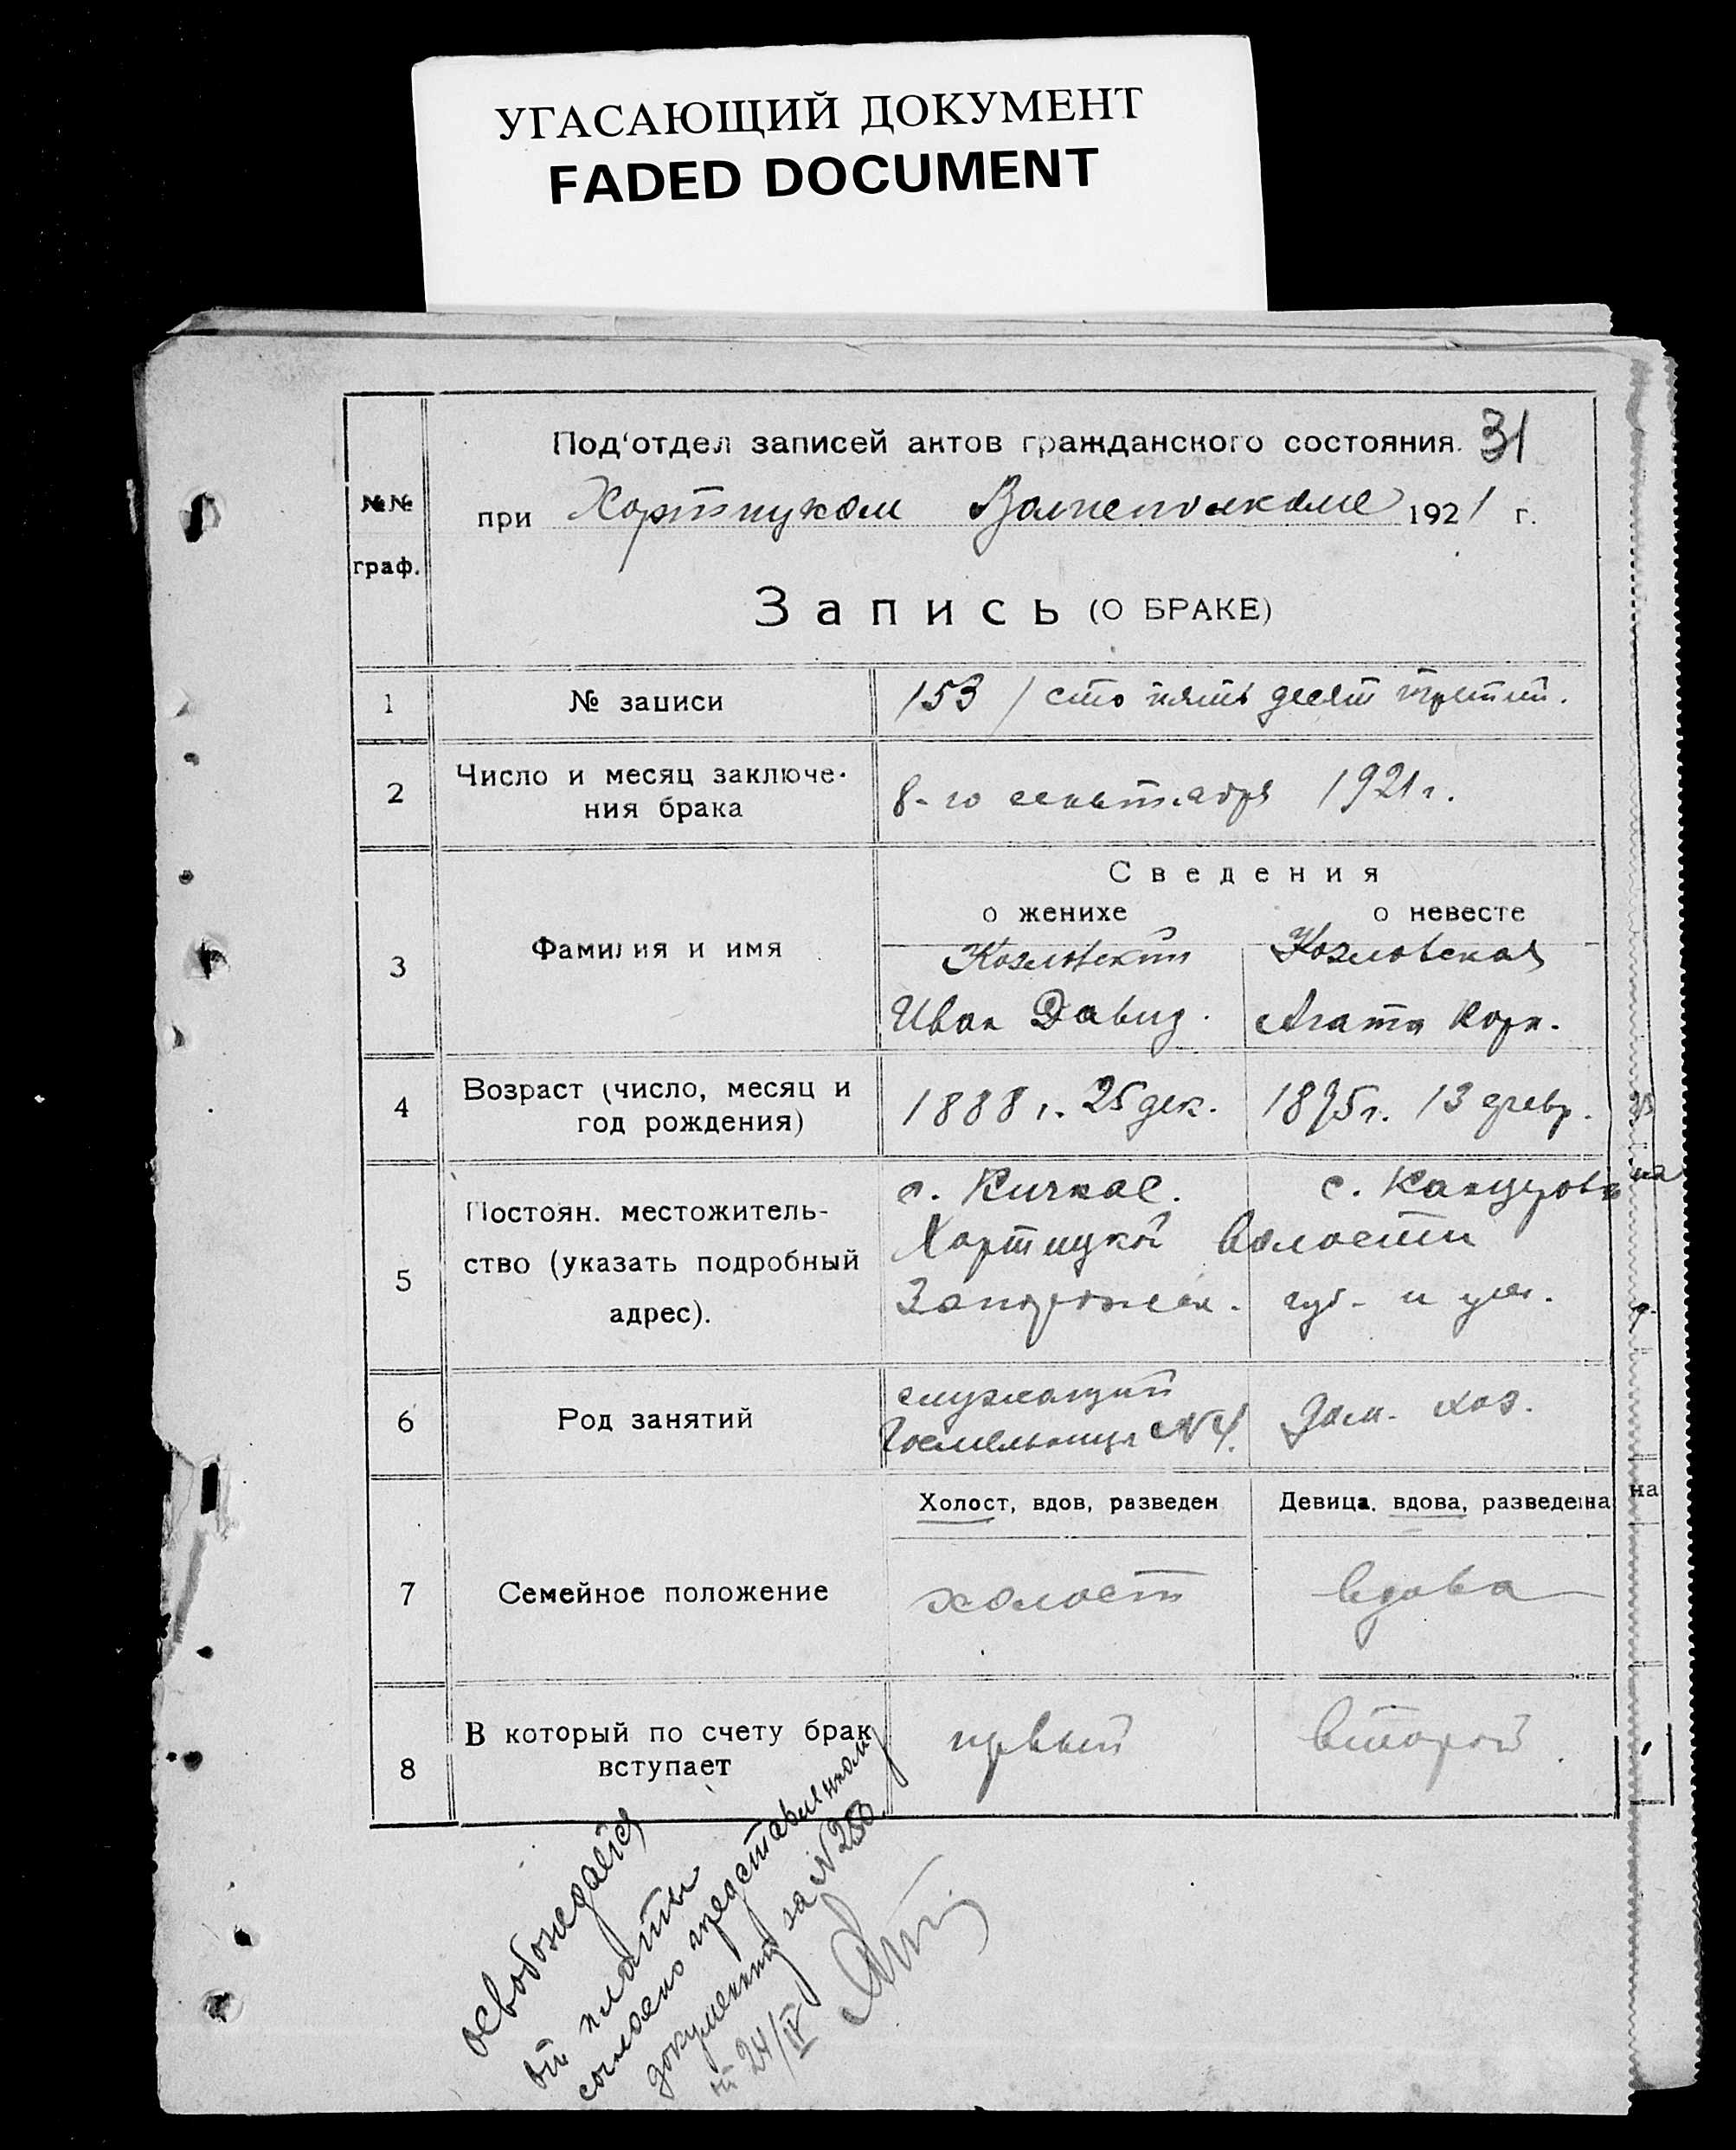 УГАСАЮЩИЙ ДОКУМЕНТ
FADED DOCUMENT
Под'отдел записей актов гражданского состояния. 31
№№
граф.
при Хортицком Волисполкоме 1921 г.
Запись (О БРАКЕ)
1 № записи 153 / сто пять десят третий.
2 Число и месяц заключе-
ния брака
8-го сентября 1921 г.
Сведения
о женихе о невесте
3 Фамилия и имя
Козловский Козловская
Иван Давид. Агата Корн.
4 Возраст (число, месяц и
год рождения)
1888 г. 25 дек. 1895 г. 13 февр.
5 Постоян. местожитель-
ство (указать подробный
адрес).
с. Кичкас. с. Канцеровк
Хортицкой волости
Запорожск. губ. и уез.
6 Род занятий
служащий
Госмельница №4. Дом. хоз.
Холост, вдов, разведен Девица, вдова, разведена
на
7 Семейное положение холост вдова
8 В который по счету брак
вступает
первый второй
освобождается
от платы
согласно представленному
документу за №250
от 24/IV